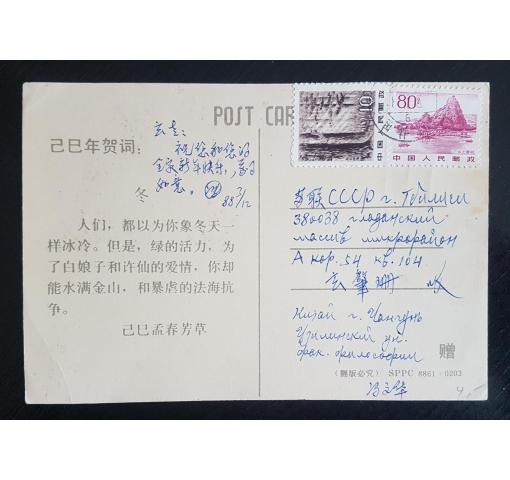 POST CAR
己巳年贺词：
冬
人们，都以为你象冬天一
样冰冷。但是，绿的活力，为
了白娘子和许仙的爱情，你却
能水满金山，和暴虐的法海抗
争。
己巳孟春芳草
祝您和您的
全家新年快乐，万事
如意。
88 3/12
10
中国人民邮政
80分
中国人民邮政
苏联 СССР г. Тбилиси
380038 глданский
массив микрорайон
А кор. 54 кв. 104
玄肇珊 收
Китай г. Чанчунь
Цзилинский ун.
фак. философии
赠
（翻版必究） SPPC 8861 · 0203
冯文华
4